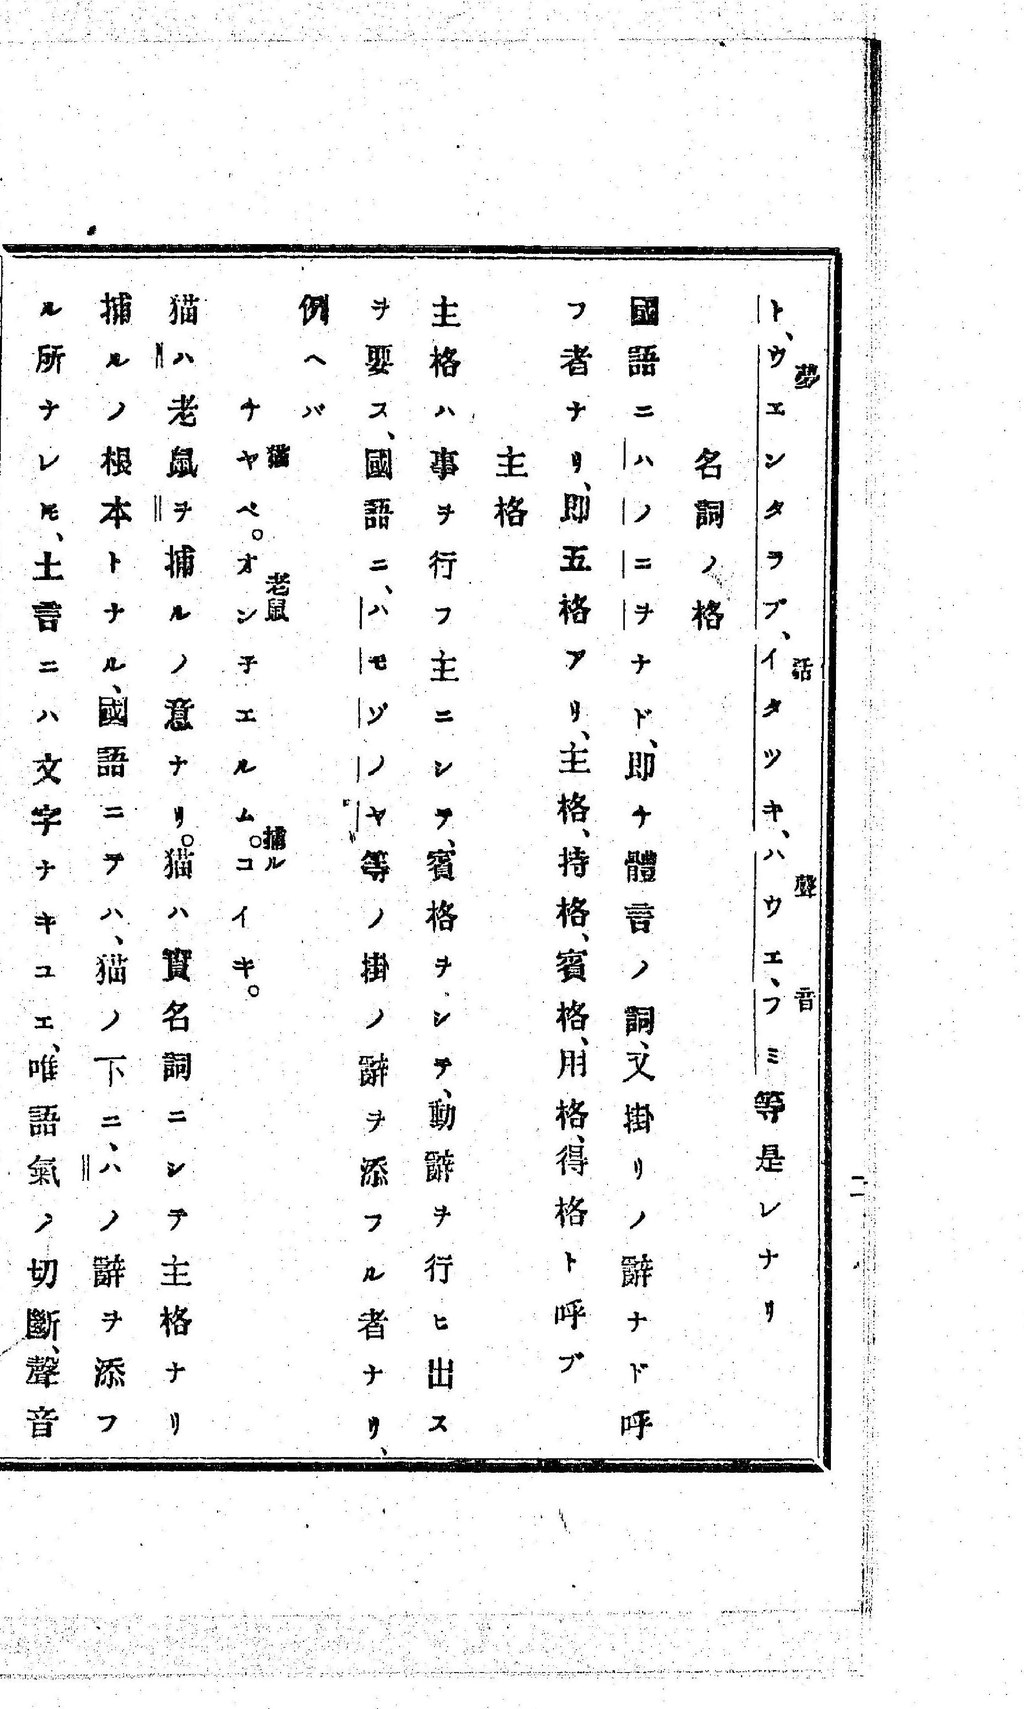 ト、ウエンタラプ、イタツキ、ハウエ、フミ等是レナリ
夢
話
聲
音
名詞ノ格
國語ニハノニヲナド、即チ體言ノ詞、又掛リノ辭ナド呼
フ者ナリ、即五格アリ、主格、持格、賓格、用格、得格ト呼ブ
主格
主格ハ事ヲ行フ主ニシテ、賓格ヲシテ、動辭ヲ行ヒ出ス
ヲ要ス、國語ニ、ハモゾノヤ等ノ掛ノ辭ヲ添フル者ナリ、
例ヘバ
猫
老鼠
捕ル
チヤペ。オン子エルム。コイキ。
猫ハ老鼠ヲ捕ルノ意ナリ。猫ハ實名詞ニシテ主格ナリ
捕ルノ根本トナル、國語ニテハ、猫ノ下ニ、ハノ辭ヲ添フ
ル所ナレ𪜈、土言ニハ文字ナキユエ、唯語氣ノ切斷、聲音
二